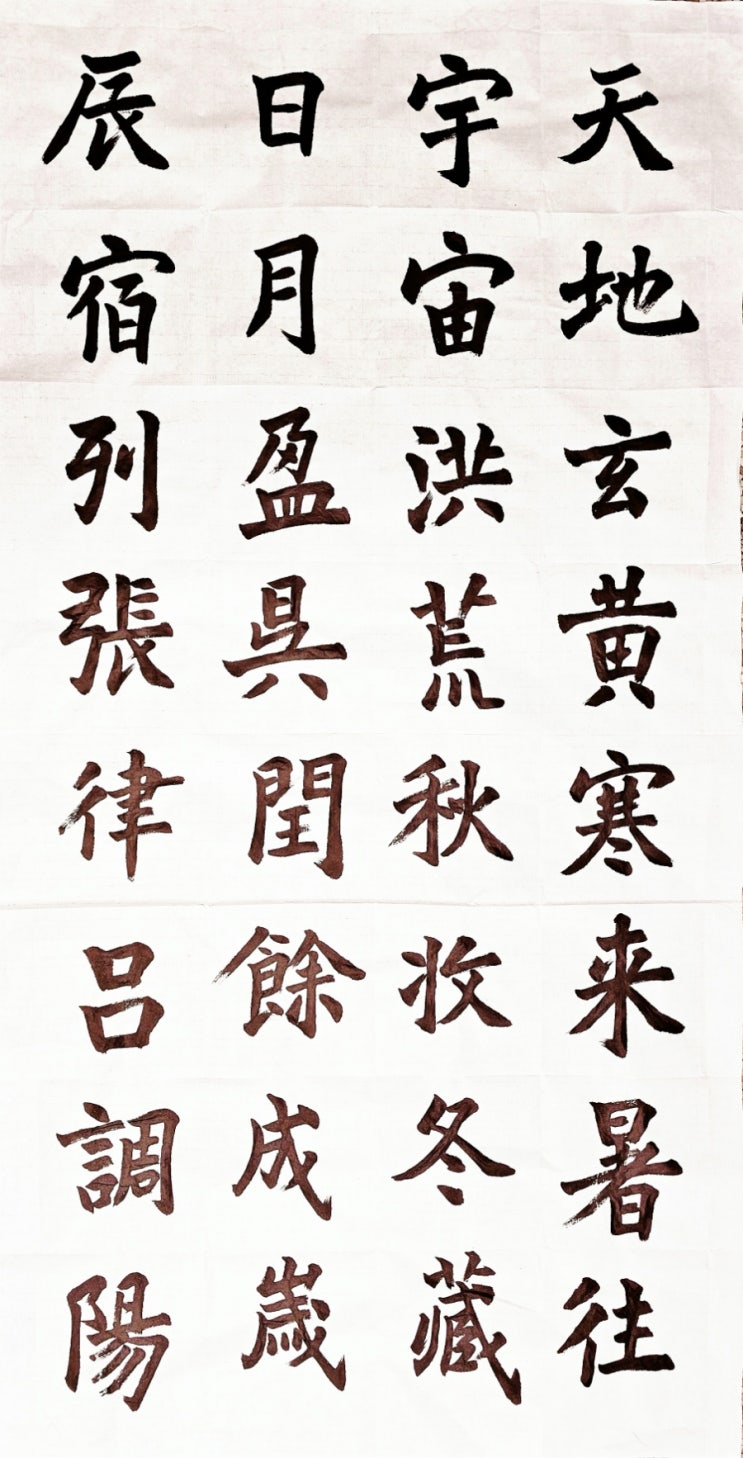 天地玄黄寒来暑往
宇宙洪荒秋收冬藏
日月盈昃閏餘成歲
辰宿列張律呂調陽